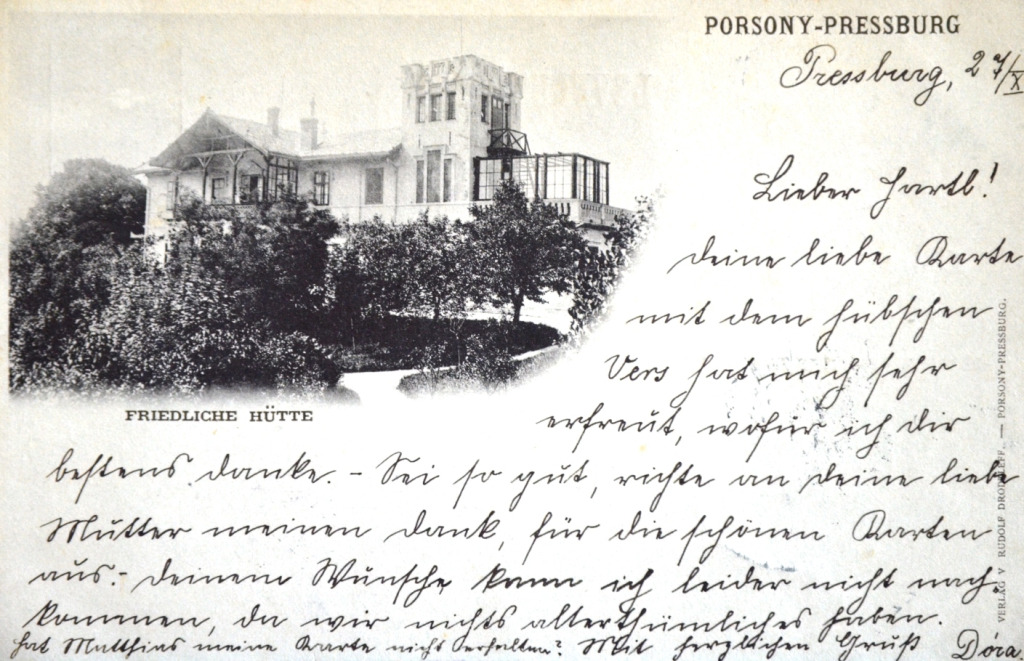 PORSONY-PRESSBURG
Pressburg, 27/X
Lieber Hartl!
Deine liebe Karte
mit dem hübschen
Vers hat mich sehr
FRIEDLICHE HÜTTE
erfreut, wofür ich dir
bestens danke. - Sei so gut, richte an deine liebe
Mutter meinen Dank, für die schönen Karten
aus. - Deinem Wunsche kann ich leider nicht nach-
kommen, da wir nichts alterthümliches haben.
Hat Matthias meine Karte nicht erhalten? Mit herzlichen Gruß Dóra
VERLAG V RUDOLF DRODTLEFF. — PORSONY-PRESSBURG.